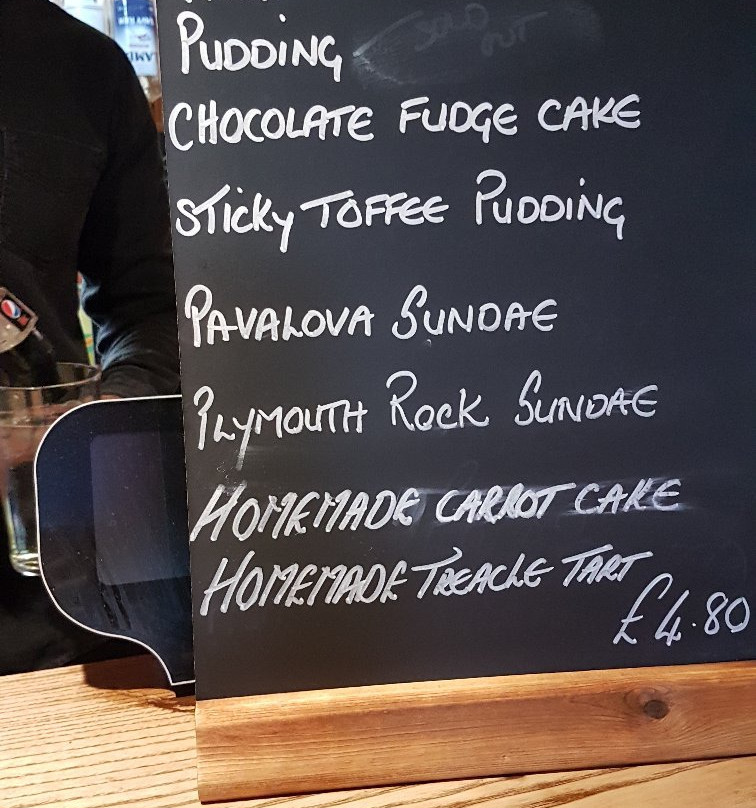 PUDDING
SOLD
OUT
CHOCOLATE FUDGE CAKE
STICKY TOFFEE PUDDING
PAVALOVA SUNDAE
PLYMOUTH ROCK SUNDAE
HOMEMADE CARROT CAKE
HOMEMADE TREACLE TART
£4.80